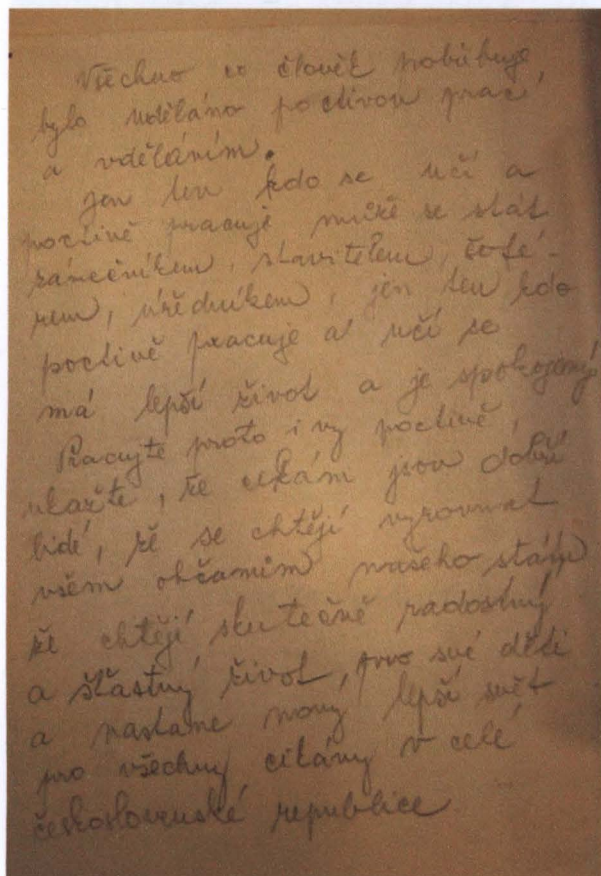 Všechno co člověk potřebuje,
bylo uděláno poctivou prací
a vděláním.
Jen ten kdo se učí a
poctivě pracuje může se stát
zámečníkem, stavitelem, šofé-
rem, úředníkem, jen ten kdo
poctivě pracuje a učí se
má lepší život a je spokojený
Pracujte proto i vy poctivě,
ukažte, že cikám jsou dobří
lidé, že se chtějí vyrovnat
všem občanům našeho státu
že chtějí skutečně radostný
a štastný život, pro své děti
a nastane nový lepší svět
pro všechny cikány v celé
československé republice